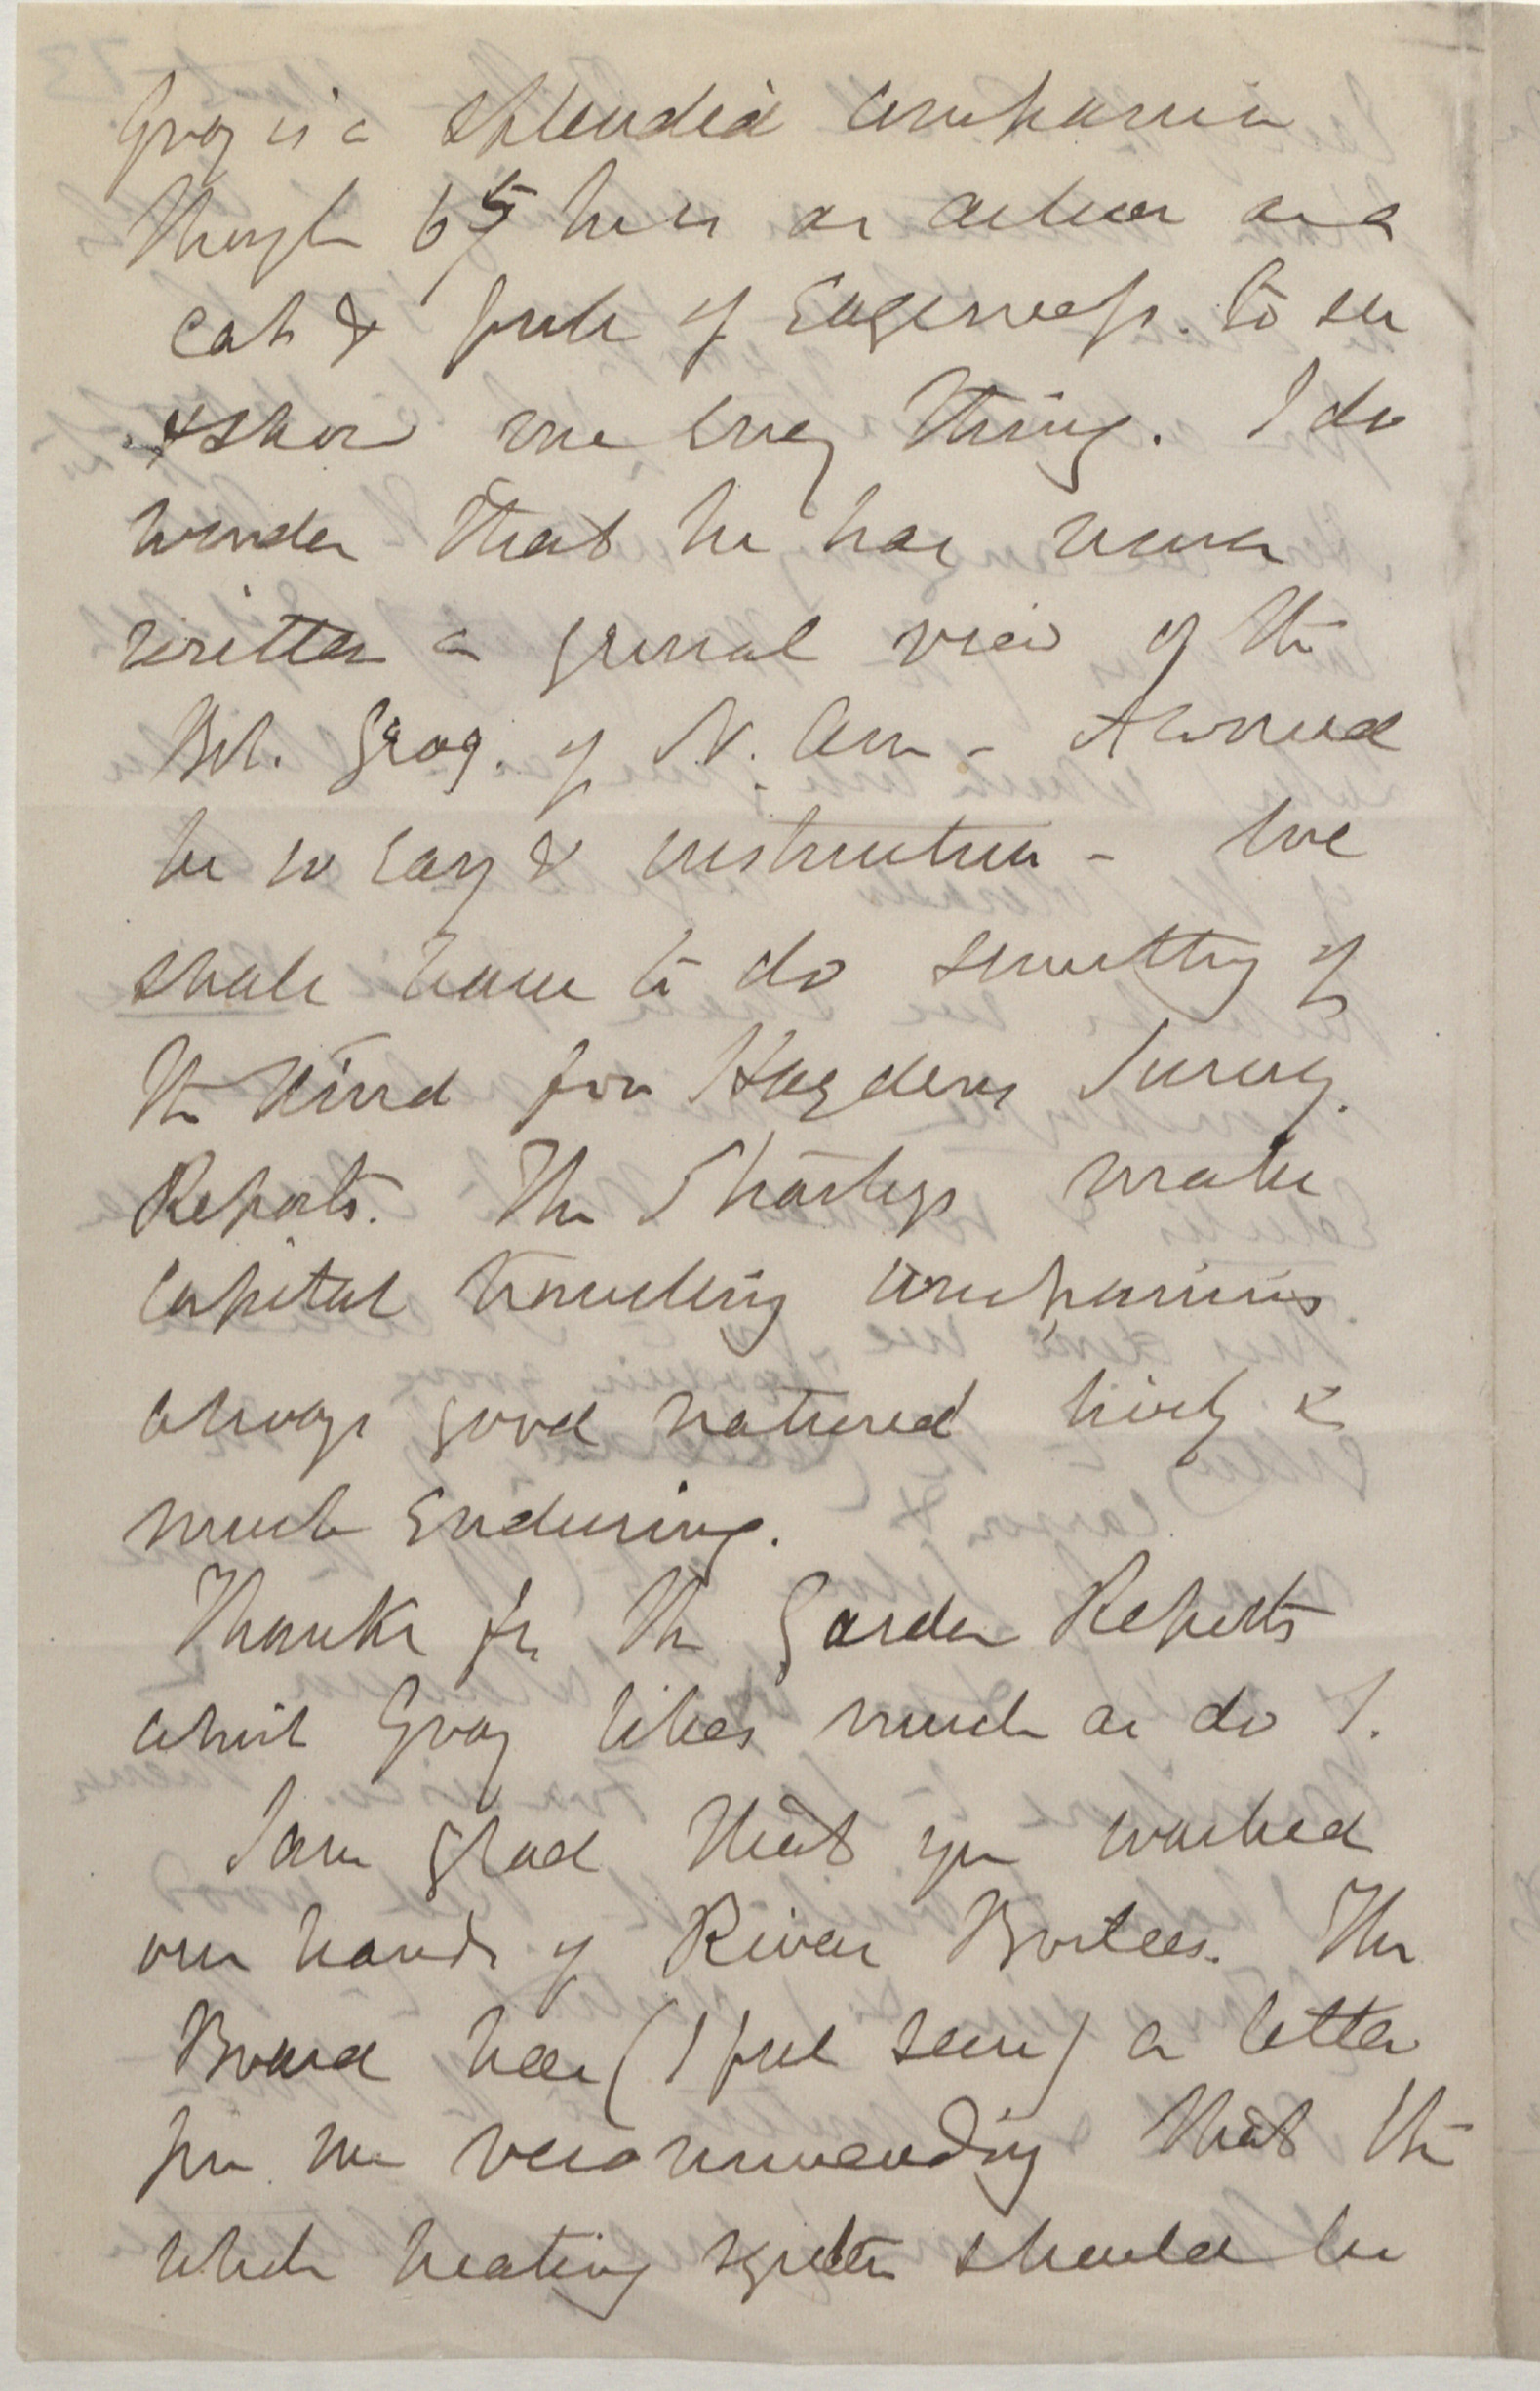 Gray is a splendid companion
though 65 he is as active as a
cat & full of eagerness. to see
& show me every thing. I do
wonder that he has never
written a general view of the
Bot. Geog. of N. Am - it would
be so easy & instructive - We
shall have to do something of
the kind for Haydens Survey.
Reports. The Stracheys make
capital travelling companions
always good natured lively &
much enduring.
Thanks for the Garden Reports
which Gray likes much as do I.
I am glad that you washed
our hands of River Boilers. The
Board has (I feel sure) a letter
from me recommending that the
whole heating system should be